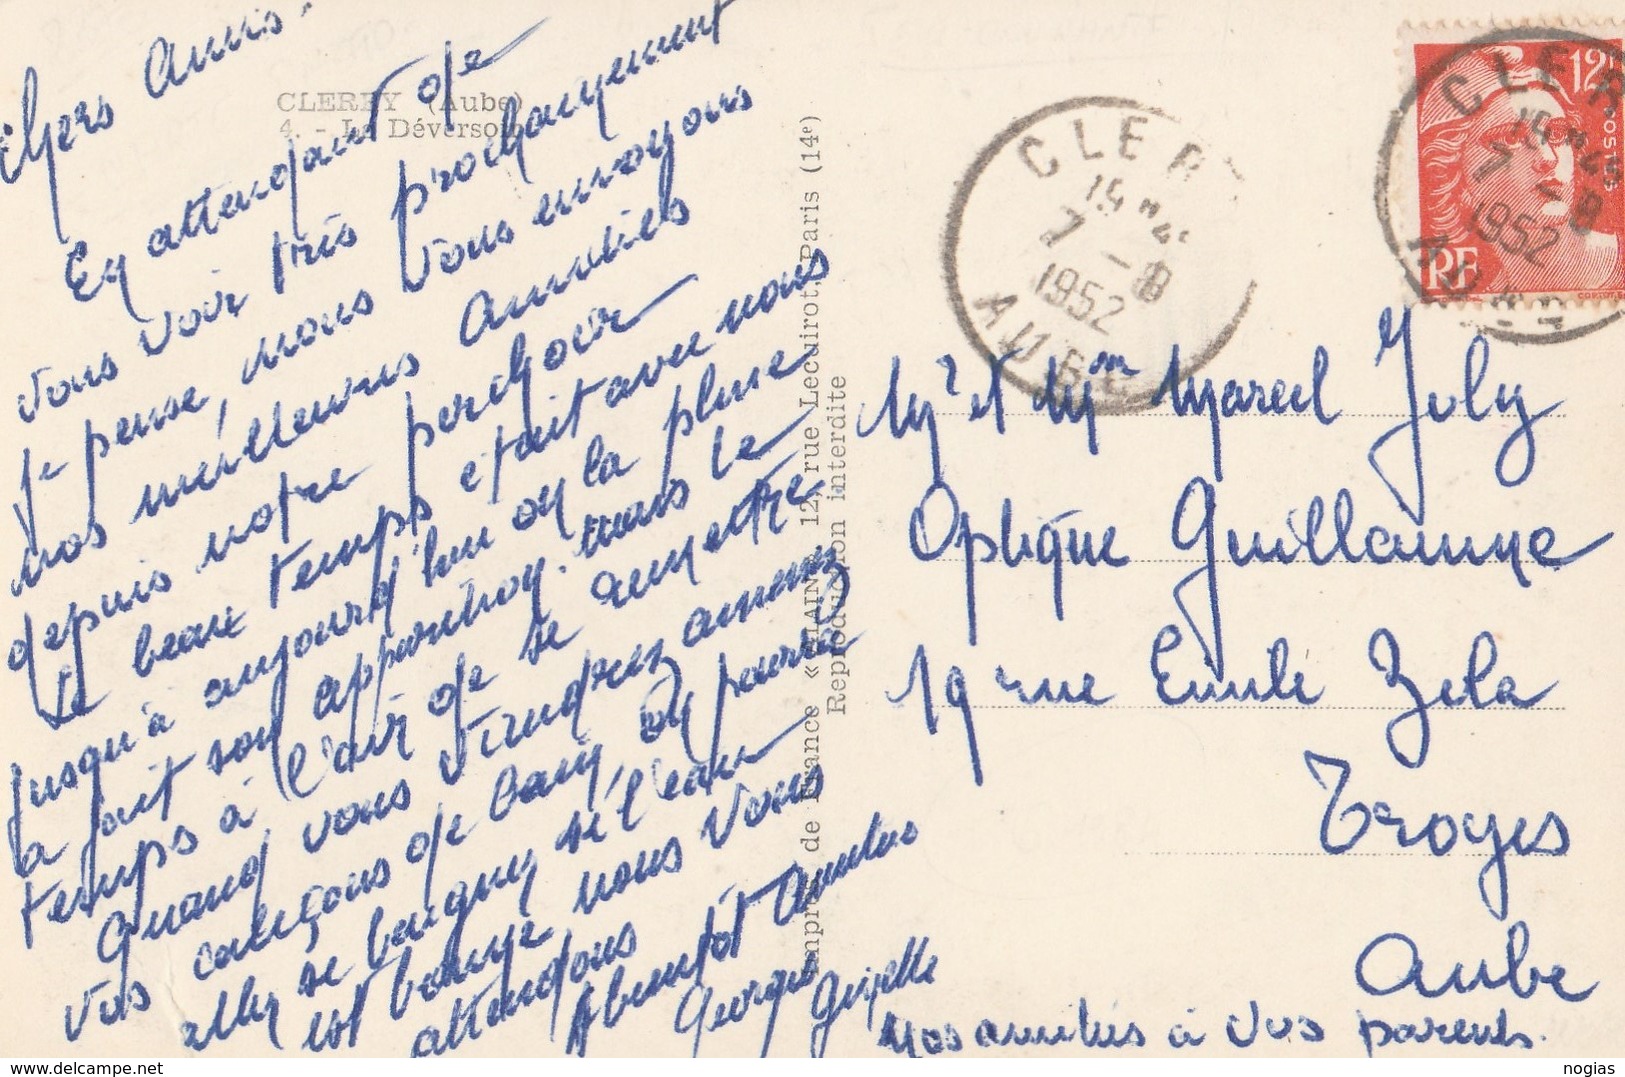 Chers Amis.
CLEREY (Aube)
4. - Le Déversoir
En attendant de
vous voir très prochainement
je pense, nous vous envoyons
nos meilleures amitiés
depuis notre perchoir
le beau temps était avec nous
jusqu'à aujourd'hui ou la pluie
a fait son apparition. mais le
temps à l'air de se remettre
Quand vous viendrez amenez
vos caleçons de bain, on pourra
aller se baigner si l'eau
est bonne nous vous
attendons
A bientôt amitiés
Georges
Gisèle
Imprés de France « ALAIN » 12, rue Lecuirot, Paris (14e)
Reproduction interdite
CLEREY
15H45
7 - 8
1952
AUBE
12F
POSTES
RF
CLEREY
15H45
7 - 8
1952
AUBE
Mr et Mme Marcel Joly
Optique Guillaume
19 rue Emile Zola
Troyes
Aube
Nos amitiés à vos parents.
nogias